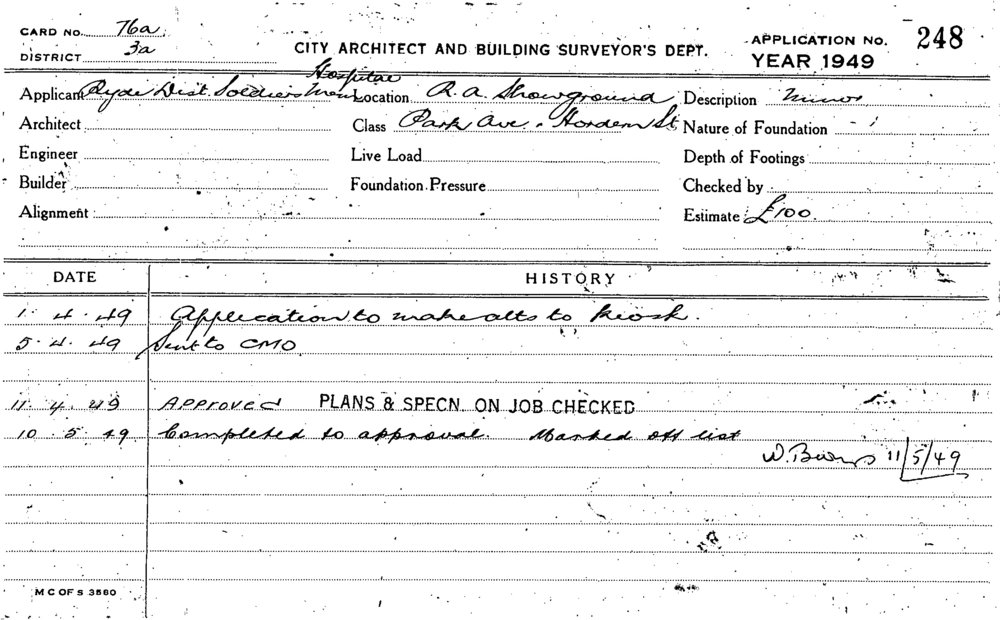 CARD No. 76a
DISTRICT 3a
CITY ARCHITECT AND BUILDING SURVEYOR'S DEPT.
APPLICATION No. 248
YEAR 1949
Applicant Ryde Dist. Soldiers Mem Hospital Location R.A. Showground Description Minor
Architect Class Park Ave. - Hordern St Nature of Foundation
Engineer Live Load Depth of Footings
Builder Foundation Pressure Checked by
Alignment Estimate £100.
DATE HISTORY
1. 4. 49 Application to make alts to kiosk.
5. 4. 49 Sent to CMO
11. 4. 49 APPROVED PLANS & SPECN. ON JOB CHECKED
10. 5. 49 Completed to approval. Marked off list
W. 11/5/49
M C OF S 3560